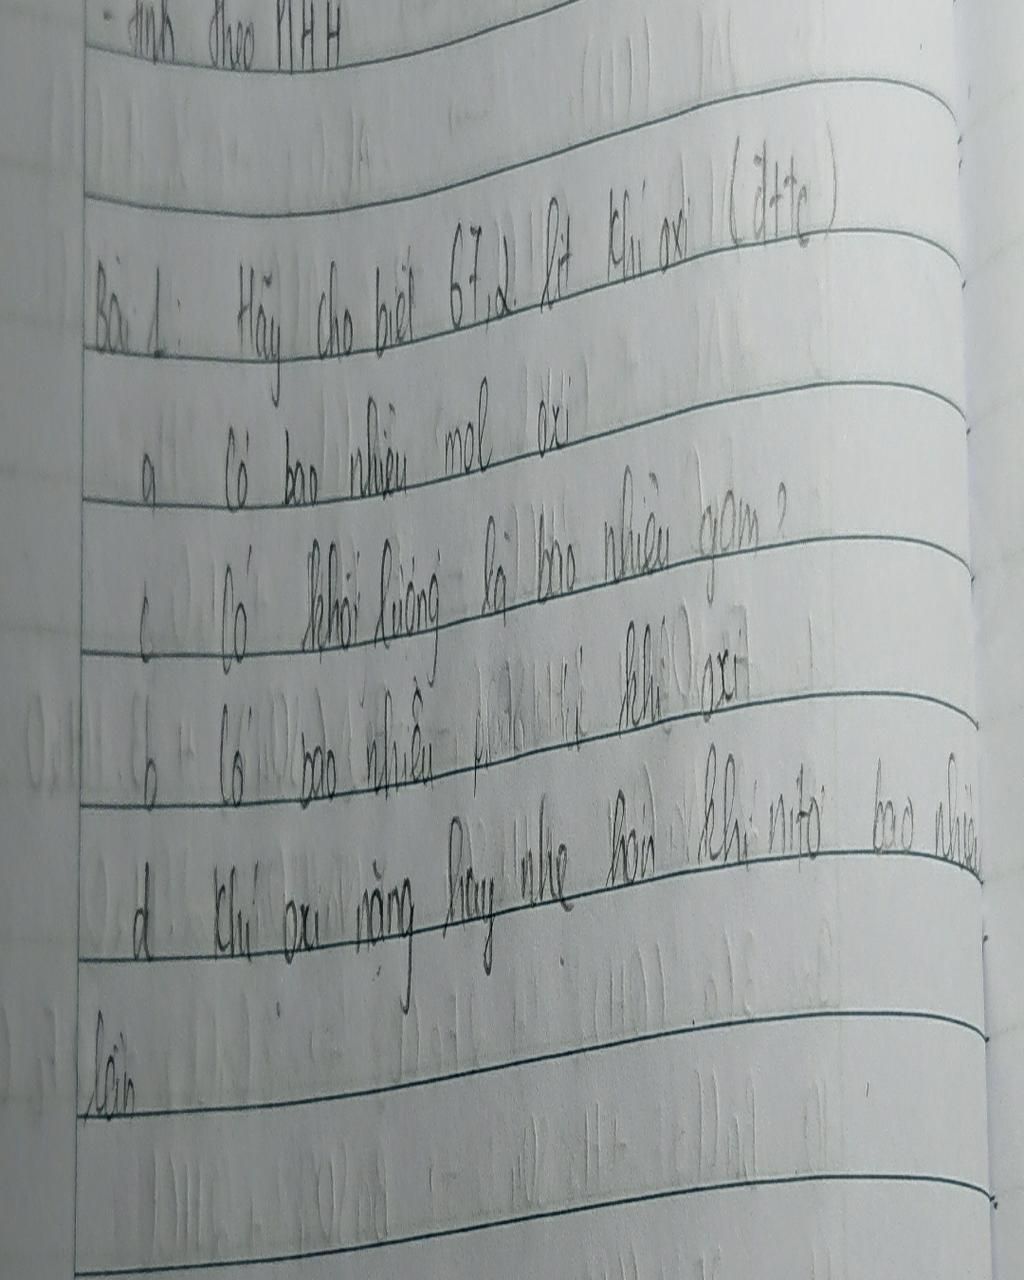 - tính theo PTHH
Bài 1: Hãy cho biết 67,2 lít khí oxi (đttc)
a Có bao nhiêu mol oxi
c Có khối lượng là bao nhiêu gam?
b Có bao nhiêu phân tử khí oxi
d Khí oxi nặng hay nhẹ hơn khí nitơ bao nhiêu
lần